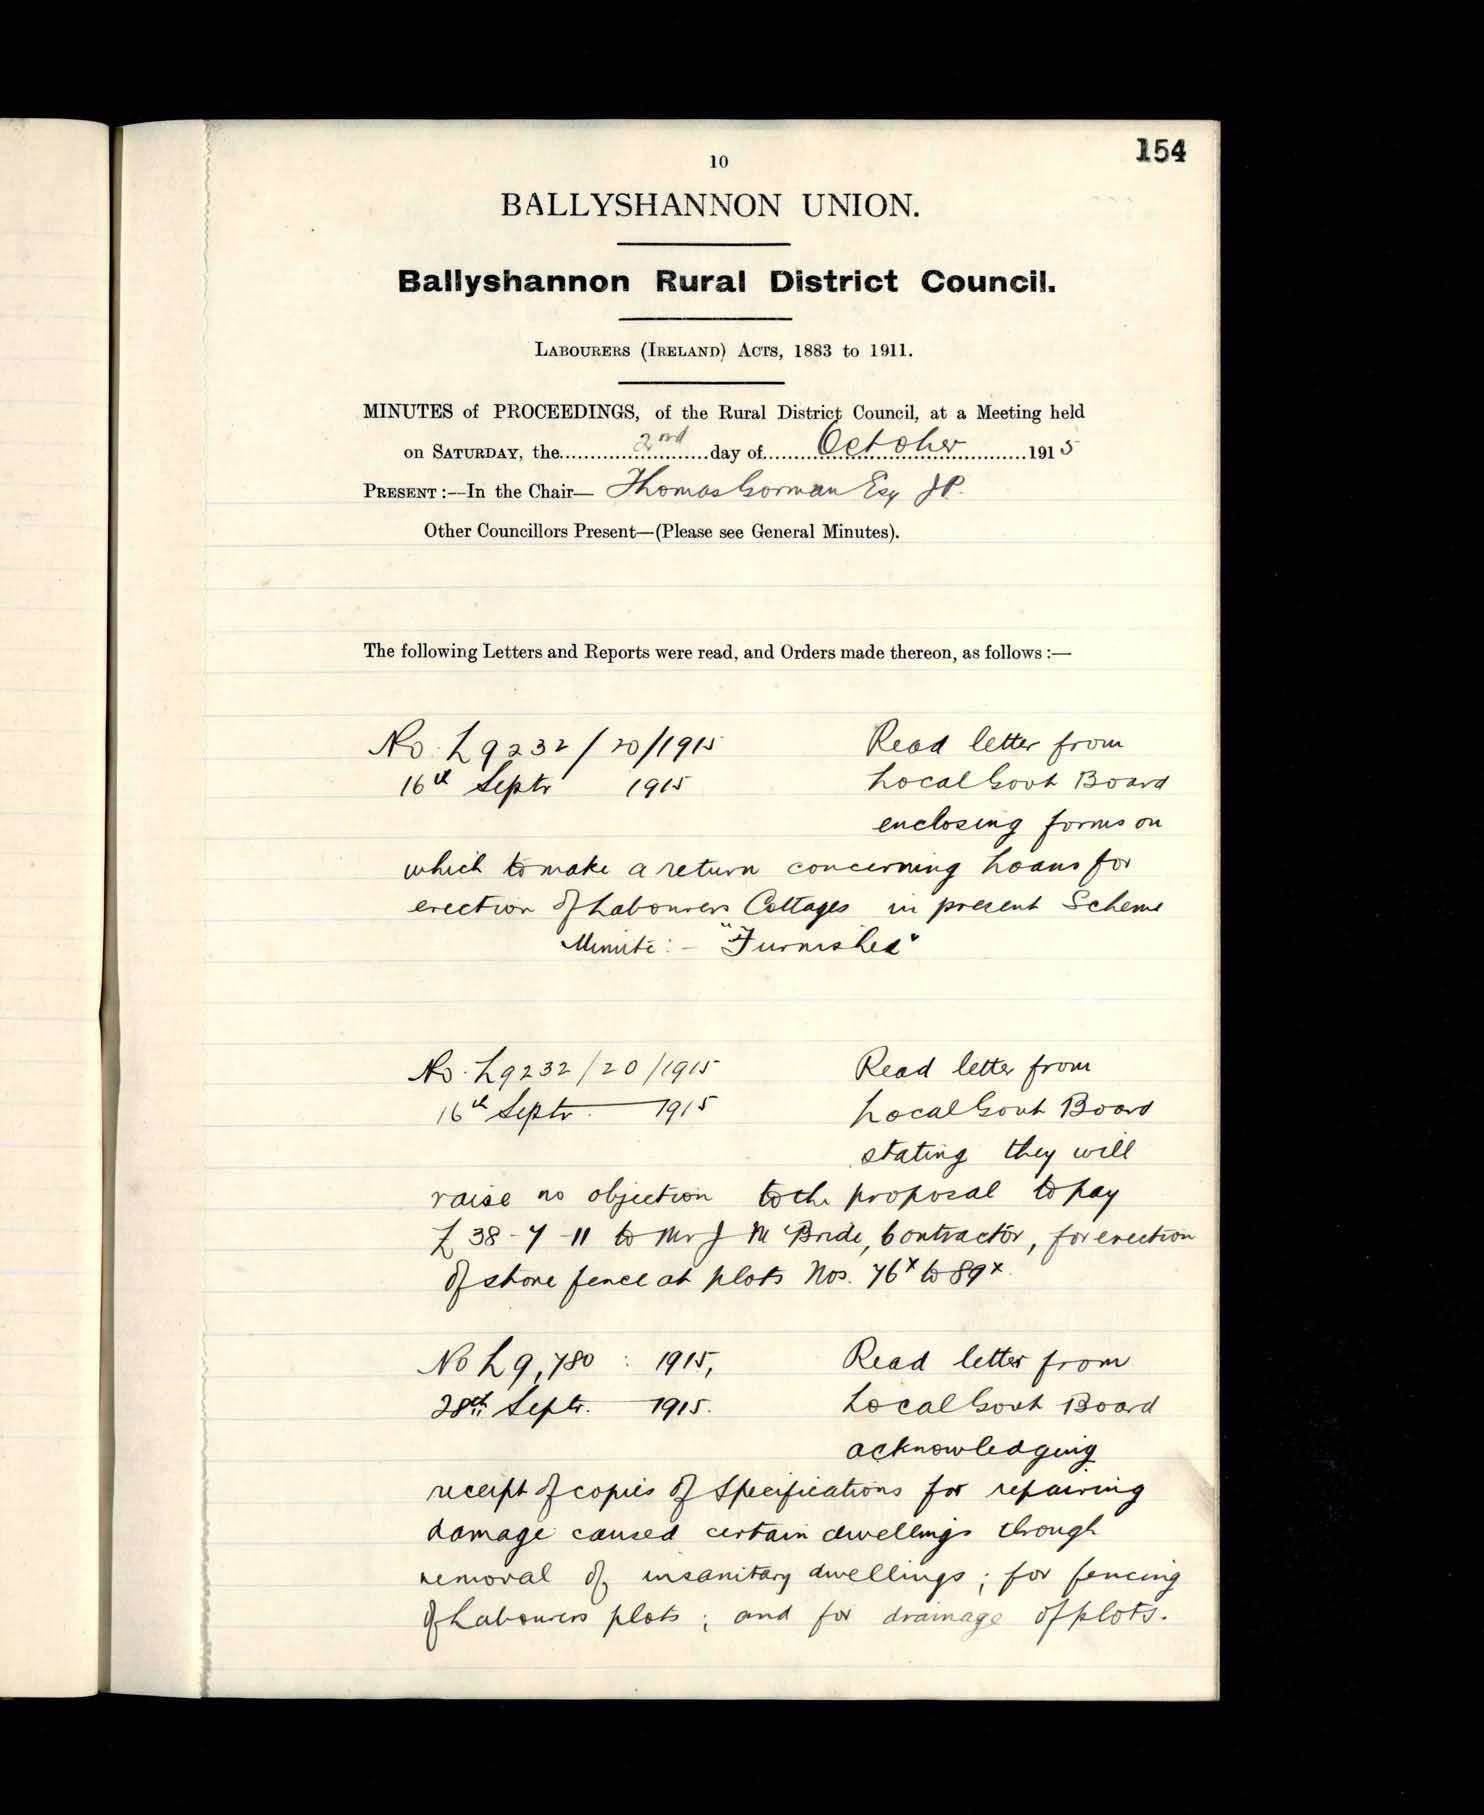 154
10
BALLYSHANNON UNION.
Ballyshannon Rural District Council.
LABOURERS (IRELAND) ACTS, 1883 to 1911.
MINUTES of PROCEEDINGS, of the Rural District Council, at a Meeting held
on SATURDAY, the 2nd day of October 1915
PRESENT:—In the Chair— Thomas Gorman Esq JP.
Other Councillors Present—(Please see General Minutes).
The following Letters and Reports were read, and Orders made thereon, as follows:—
No. L 9232/20/1915 Read letter from
16th Septr 1915 Local Govt Board
enclosing forms on
which to make a return concerning Loans for
erection of Labourers Cottages in present Scheme
Minute:- "Furnished"
No. L9232/20/1915 Read letter from
16th Septr. 1915 Local Govt Board
stating they will
raise no objection to the proposal to pay
£38-7-11 to Mr J McBride, Contractor, for erection
of stone fence at plots Nos. 76x to 89x.
No L9,780 : 1915, Read letter from
28th Septr. 1915. Local Govt Board
acknowledging
receipt of copies of Specifications for repairing
damage caused certain dwellings through
removal of insanitary dwellings; for fencing
of Labourers plots; and for drainage of plots.